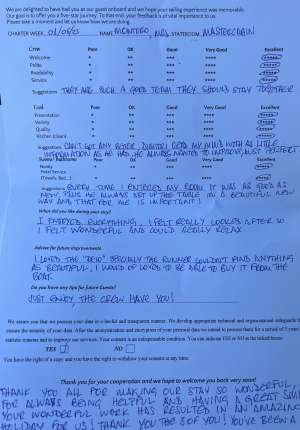 We are delighted to have had you as our guest onboard and we hope your sailing experience was memorable.
Our goal is to offer you a five-star journey. To that end, your feedback is of vital importance to us.
Please take a moment and let us know how we are doing.
CHARTER WEEK NAME MONTEIGO, STATEROOM MASTERCABIN
Crew Poor OK Good Very Good Excellent
Welcome * ** *** **** *****
Polite * ** *** **** *****
Availability * ** *** **** *****
Service * ** *** **** *****
Suggestions THEY ARE SUCH A GOOD TEAM THEY SHOULD STAY TOGETHER
Food Poor OK Good Very Good Excellent
Presentation * ** *** **** *****
Variety * ** *** **** *****
Quality * ** *** **** *****
Kitchen (clean) * ** *** **** *****
Suggestions CAN'T GET ANY BETTER, READ MY MIND WITH AS LITTLE
INFORMATION AS HE HAS. HE ALWAYS WANTED TO IMPROVE, JUST PERFECT
Poor OK Good Very Good Excellent
* ** *** **** *****
Hotel Service
(Towels, Bed...) * ** *** **** *****
Suggestions EVERY TIME I ENTERED MY ROOM IT WAS AS GOOD AS
NEW. PLUS HE ALWAYS SET UP THE TABLE IN A BEAUTIFUL NEW
WAY AND THAT FOR ME IS IMPORTANT!
What did you like during your stay?
I ENJOYED EVERYTHING, I FELT REALLY LOOKED AFTER SO
I FELT WONDERFUL AND COULD REALLY RELAX
Advice for future improvements
I LOVED THE "DECO" SPECIALLY THE RUNNER COULDN'T FIND ANYTHING
AS BEAUTIFUL, I WOULD OF LOVED TO BE ABLE TO BUY IT FROM THE
BOAT.
Do you have any tips for future Guests?
JUST ENJOY THE CREW HAVE YOU!
We assure you that we process your data in a lawful and transparent manner. We develop appropriate technical and organisational safeguards
ensure the security of your data. After the anonymization and encryption of your personal data we intend to process them for a period of 5 years
statistic reasons and to improve our services. Your consent is an indispensable condition. You can indicate YES or NO in the ticked boxes
YES NO
You have the right of a copy and you have the right to withdraw your consent at any time.
Thank you for your cooperation and we hope to welcome you back very soon!
THANK YOU ALL FOR MAKING OUR STAY SO WONDERFUL,
FOR ALWAYS BEING HELPFUL AND HAVING A GREAT
YOUR WONDERFUL WORK HAS RESULTED IN AN AMAZING
HOLIDAY FOR US! THANK YOU THE 3 OF YOU! YOU'VE BEEN A